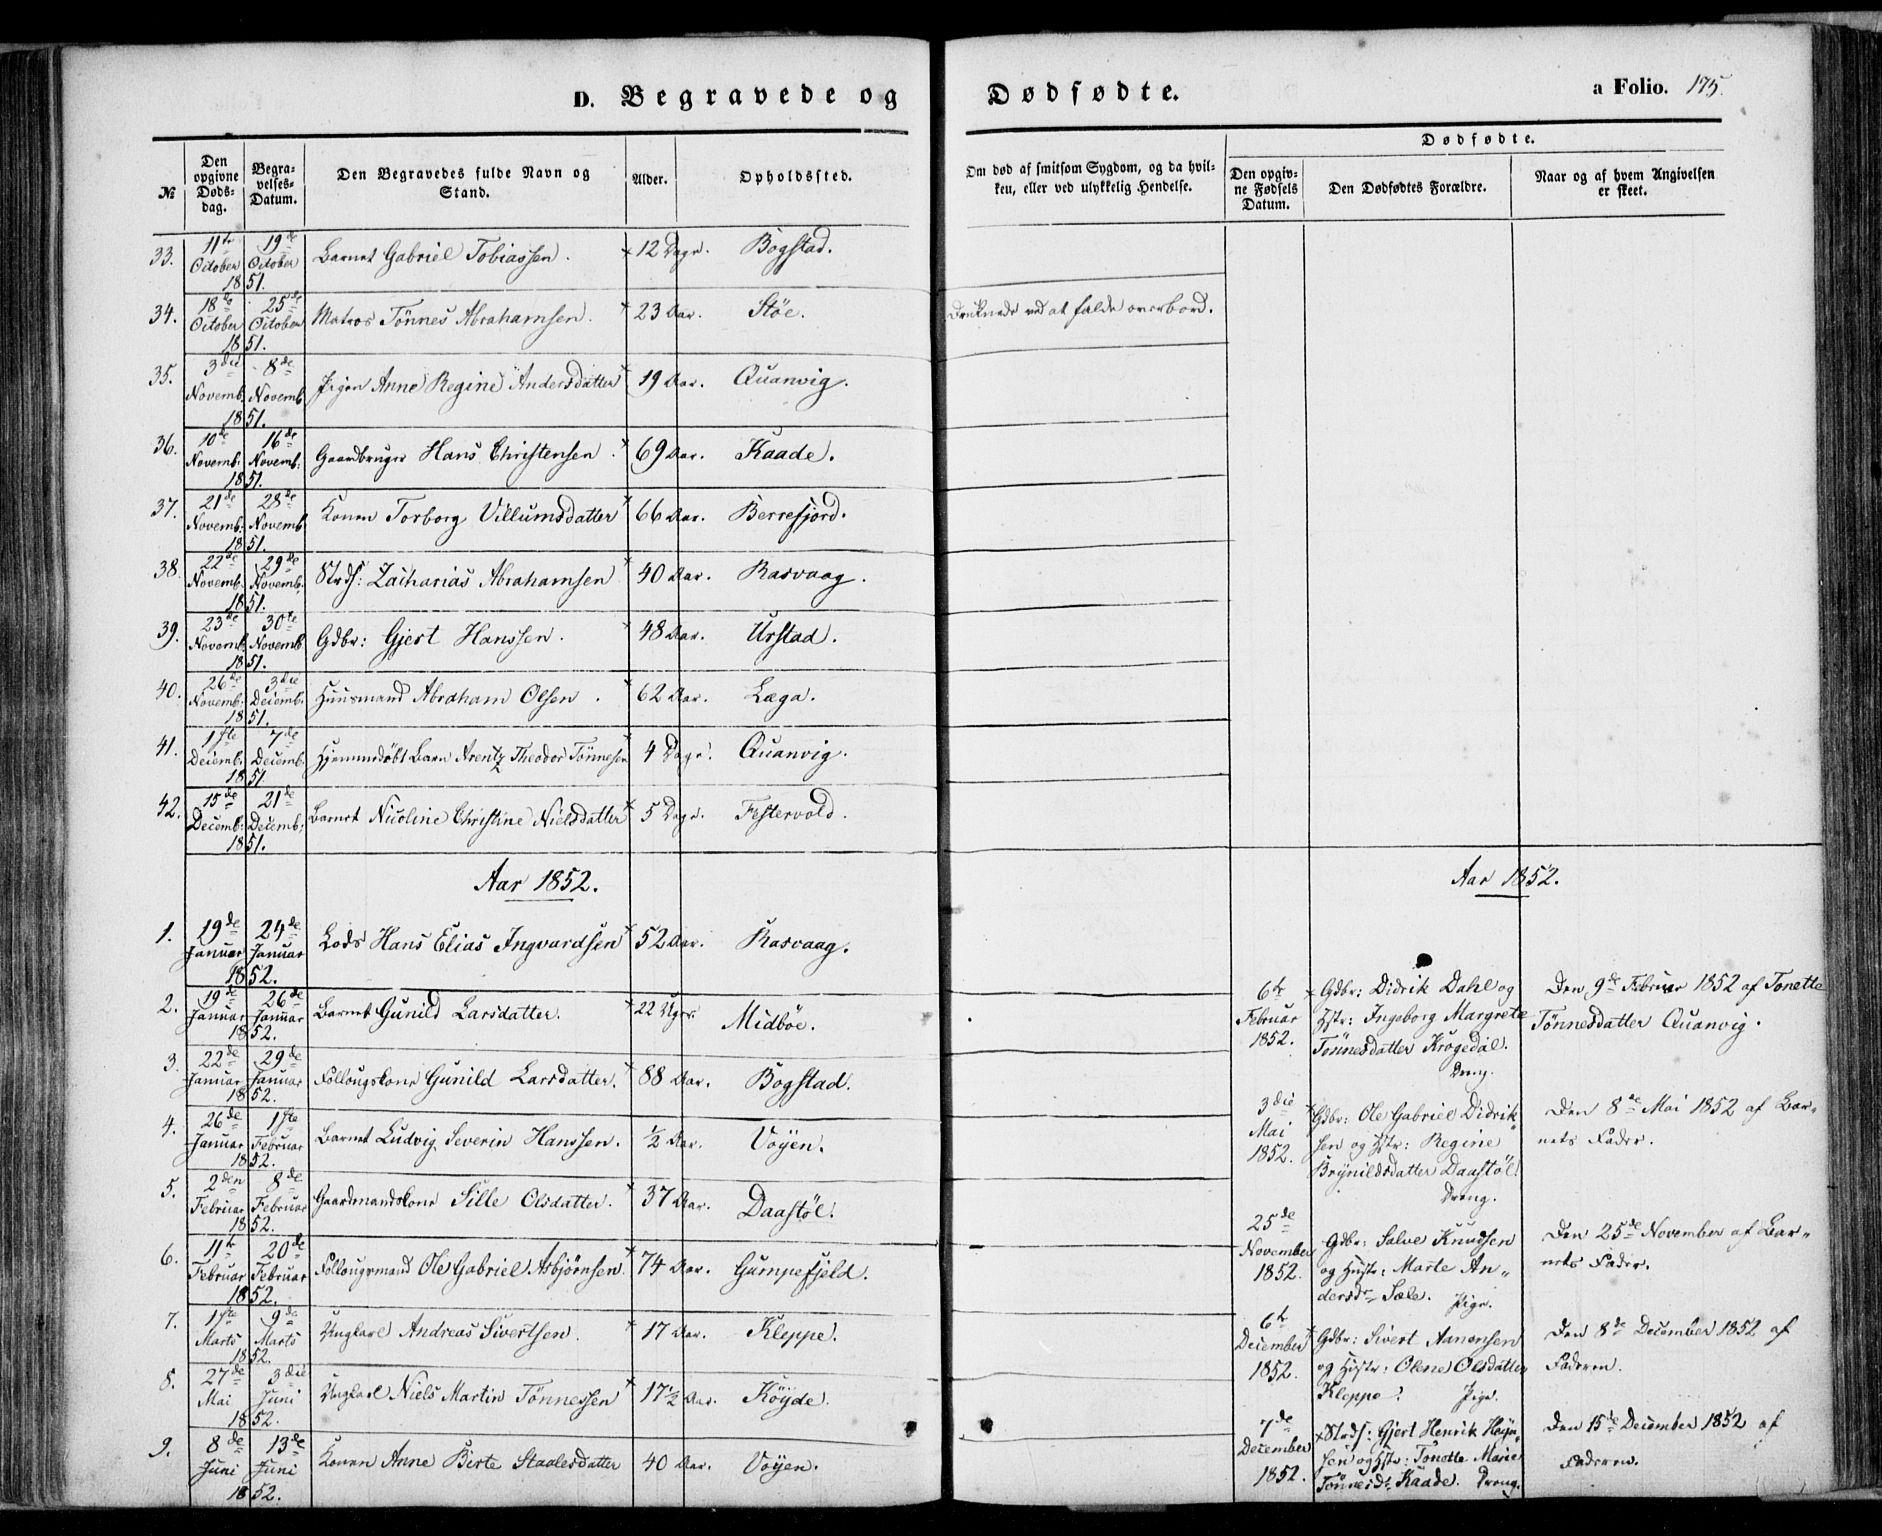 D. Begravede og Dødfødte. a Folio. 175.
№ Den opgivne Døds-dag. Begra-velses-Datum. Den Begravedes fulde Navn og Stand. Alder. Opholdssted. Om død af smitsom Sygdom, og da hvil-ken, eller ved ulykkelig Hendelse.
Dødfødte.
Den opgiv-ne Fødsels Datum. Den Dødfødtes Forældre. Naar og af hvem Angivelsen er skeet.
33. 11te October 19de October 1851. Barnet Gabriel Tobiassen. 12 Dage. Bogstad.
34. 18de October 25de October 1851. Matros Tönnes Abrahamsen. 23 Aar. Stöe. Druknede ved at falde overbord.
35. 3die Novemb. 8de Novemb. 1851. Pigen Anne Regine Andersdatter 19 Aar. Quanvig.
36. 10de Novemb: 16de Novemb: 1851. Gaardbruger Hans Christensen. 69 Aar. Kaade.
37. 21de Novemb: 28de Novemb. 1851. Konen Torborg Villumsdatter 66 Aar. Berrefjord.
38. 22de Novemb. 29de Novemb. 1851. Strds: Zacharias Abrahamsen 40 Aar. Rasvaag.
39. 23de Novemb: 30te Novemb 1851. Gdbr: Gjert Hanssen. 48 Aar. Urstad.
40. 26de Novemb: 3die Decemb: 1851. Huusmand Abraham Olsen. 62 Aar. Læga.
41. 1ste Decemb. 7de Decemb. 1851 Hjemmedöbt Barn Arentz Theodor Tönnesen 4 Dage. Quanvig.
42. 15de Decemb: 21de Decemb: 1851. Barnet Nicoline Christine Nielsdatter 5 Dage. Festervold.
Aar 1852.
1. 19de Januar 24de Januar 1852. Lods Hans Elias Ingvardsen 52 Aar. Rasvaag.
2. 19de Januar 26de Januar 1852. Barnet Gunild Larsdatter. 22 Uger. Midböe.
3. 22de Januar 29de Januar 1852. Follougskone Gunild Larsdatter. 88 Aar. Bogstad.
4. 26de Januar 1ste Februar 1852. Barnet Ludvig Severin Hanssen. ½ Aar. Voyen.
5. 2den Februar 8de Februar 1852. Gaardmandskone Sille Olsdatter. 37 Aar. Daastöl.
6. 11te Februar 20de Februar 1852. Follougsmand Ole Gabriel Asbjörnsen. 74 Aar. Gumpefjeld.
7. 1ste Marts 9de Marts 1852. Ungkarl Andreas Sivertsen. 17 Aar. Kleppe.
8. 27de Mai 3die Juni 1852. Ungkarl Niels Martin Tönnessen 17½ Aar. Köyde.
9. 8de Juni 13de Juni 1852. Konen Anne Birte Staalesdatter 40 Aar. Voyen.
Aar 1852.
6te Februar 1852. Gdbr: Didrik Dahl og Hstr: Ingeborg Margrete Tönnesdatter Krogedal. Dreng. Den 9de Februar 1852 af Tonette Tönnesdatter Quanvig.
3die Mai 1852. Gdbr: Ole Gabriel Didriksen og Hstr: Regine Brynildsdatter Daastöl. Dreng. Den 8de Mai 1852 af Barnets Fader.
25de November 1852. Gdbr: Salve Knudsen og Hustr: Marte Andersdr Sæle. Pige. Den 25de November af Barnets Fader.
6te December 1852. Gdbr: Sivert Aanensen og Hustr: Olene Olsdatter Kleppe. Pige. Den 8de December 1852 af Faderen.
7de December 1852. Strds: Gjert Henrik sen og Hstr: Tonette Marie Tönnesdr Kaade. Dreng. Den 15de December 1852 af Faderen.